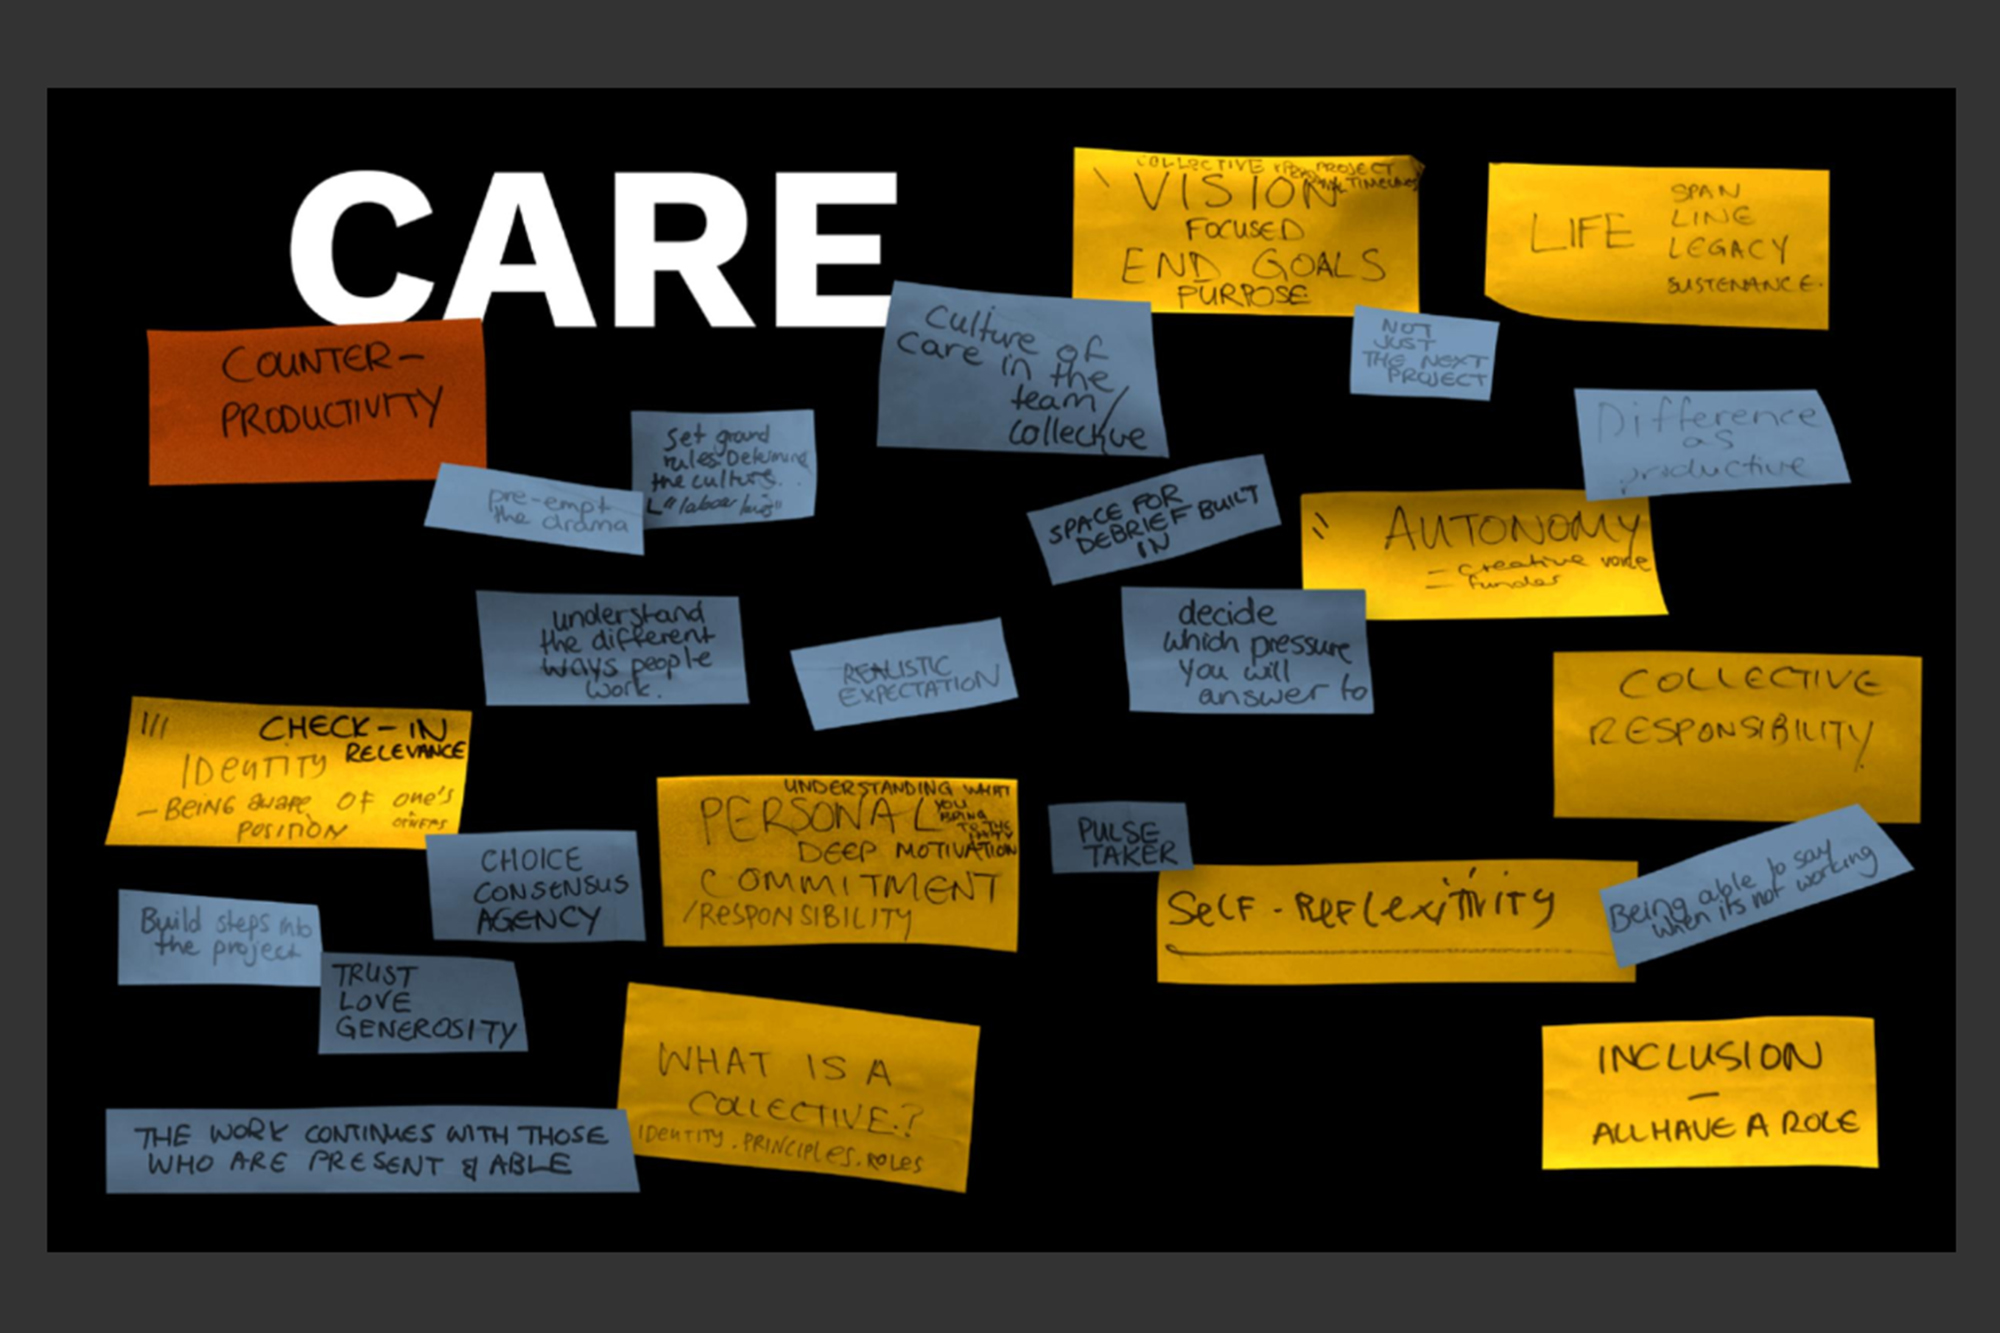 CARE
COLLECTIVE PROJECT
TIMELINES
VISION
FOCUSED
END GOALS
PURPOSE
LIFE
SPAN
LINE
LEGACY
SUSTENANCE.
COUNTER-
PRODUCTIVITY
Culture of
care in the
team/
collective
NOT
JUST
THE NEXT
PROJECT
Difference
as
productive
set ground
rules. Determining
the culture.
pre-empt
the drama
SPACE FOR
DEBRIEF BUILT
IN
AUTONOMY
= creative voice
= funder
understand
the different
ways people
work.
REALISTIC
EXPECTATION
decide
which pressure
you will
answer to
COLLECTIVE
RESPONSIBILITY
CHECK-IN
RELEVANCE
IDENTITY
- BEING aware OF one's
OTHERS
POSITION
UNDERSTANDING WHAT
YOU
BRING
TO THE
PERSONAL
DEEP MOTIVATION
COMMITMENT
/RESPONSIBILITY
PULSE
TAKER
SELF-REFlexiTiViTy
Being able to say
when its not working
CHOICE
CONSENSUS
AGENCY
Build steps into
the project
TRUST
LOVE
GENEROSITY
WHAT IS A
COLLECTIVE?
IDENTITY. PRINCIPLES. ROLES
THE WORK CONTINUES WITH THOSE
WHO ARE PRESENT & ABLE
INCLUSION
-
ALL HAVE A ROLE